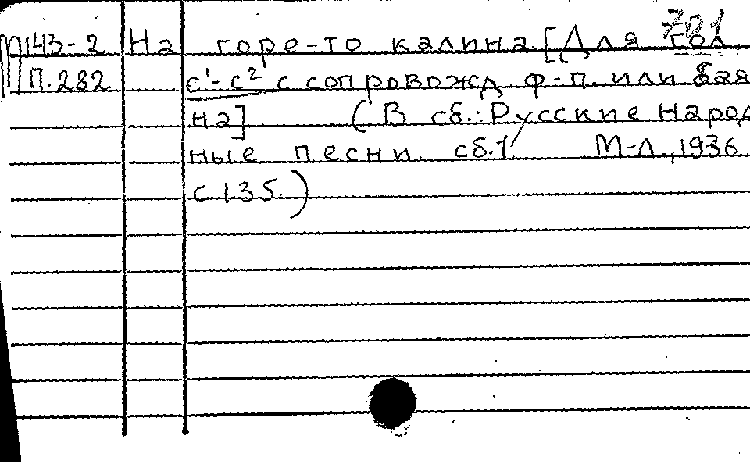 143-2 На горе-то калина [Для гол.
П.282 с¹-с² с сопровожд ф-п. или бая
на] (В сб.: Русские народ
ные песни сб.1 М-Л., 1936
с 135.)